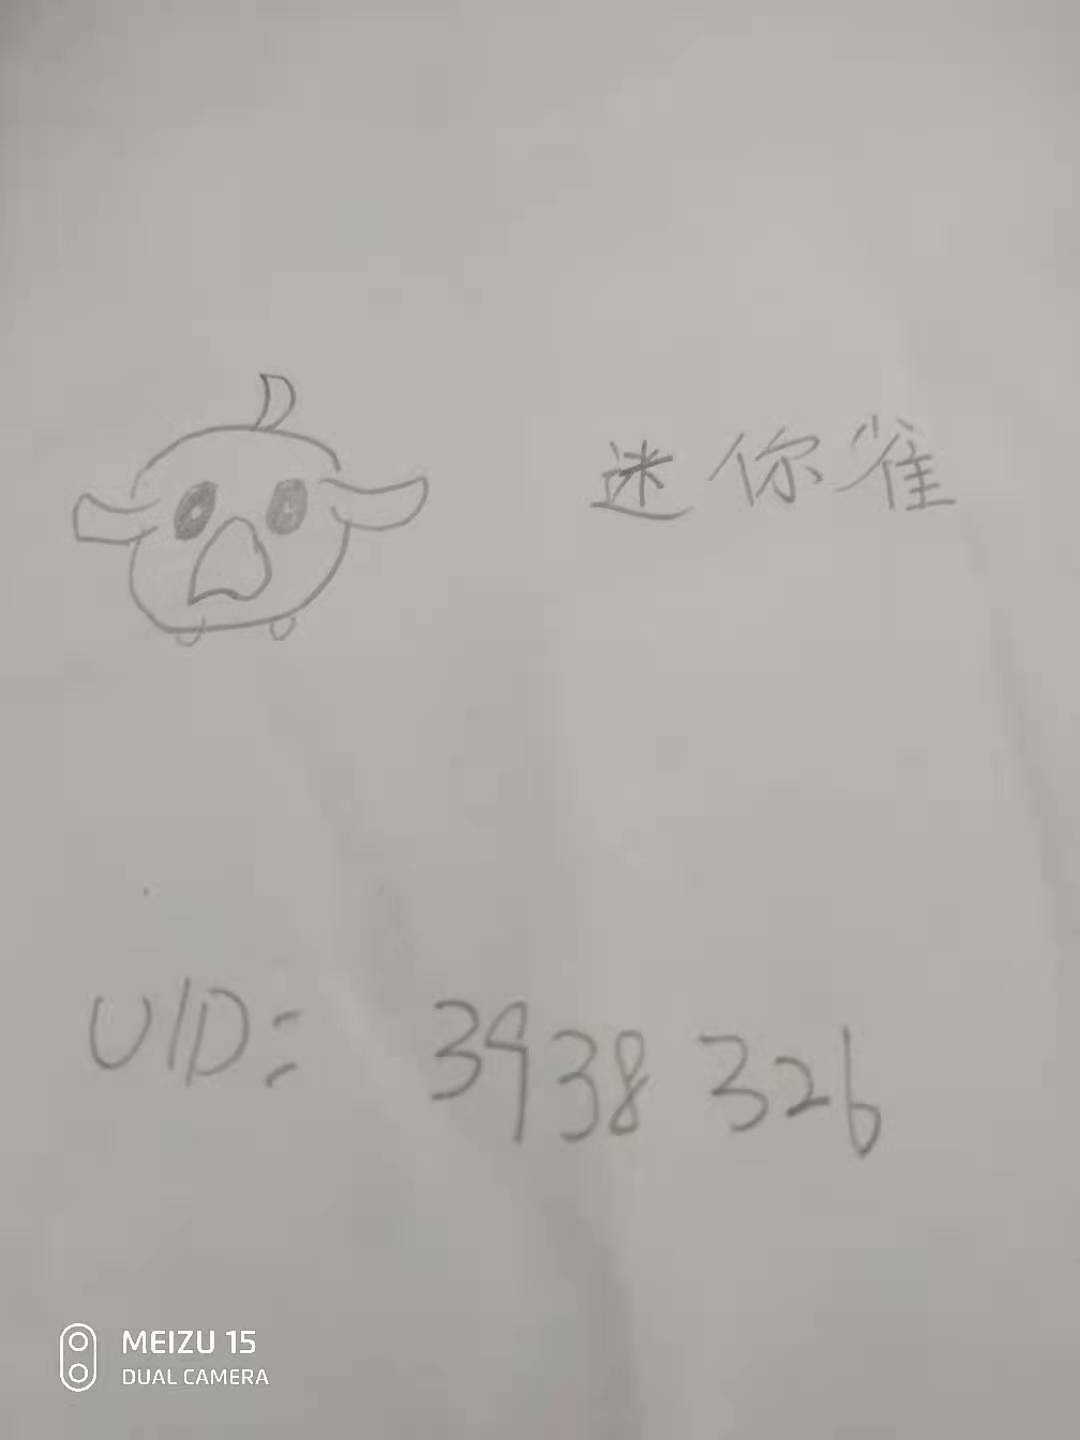 迷你雀
UID: 3938326
MEIZU 15
DUAL CAMERA